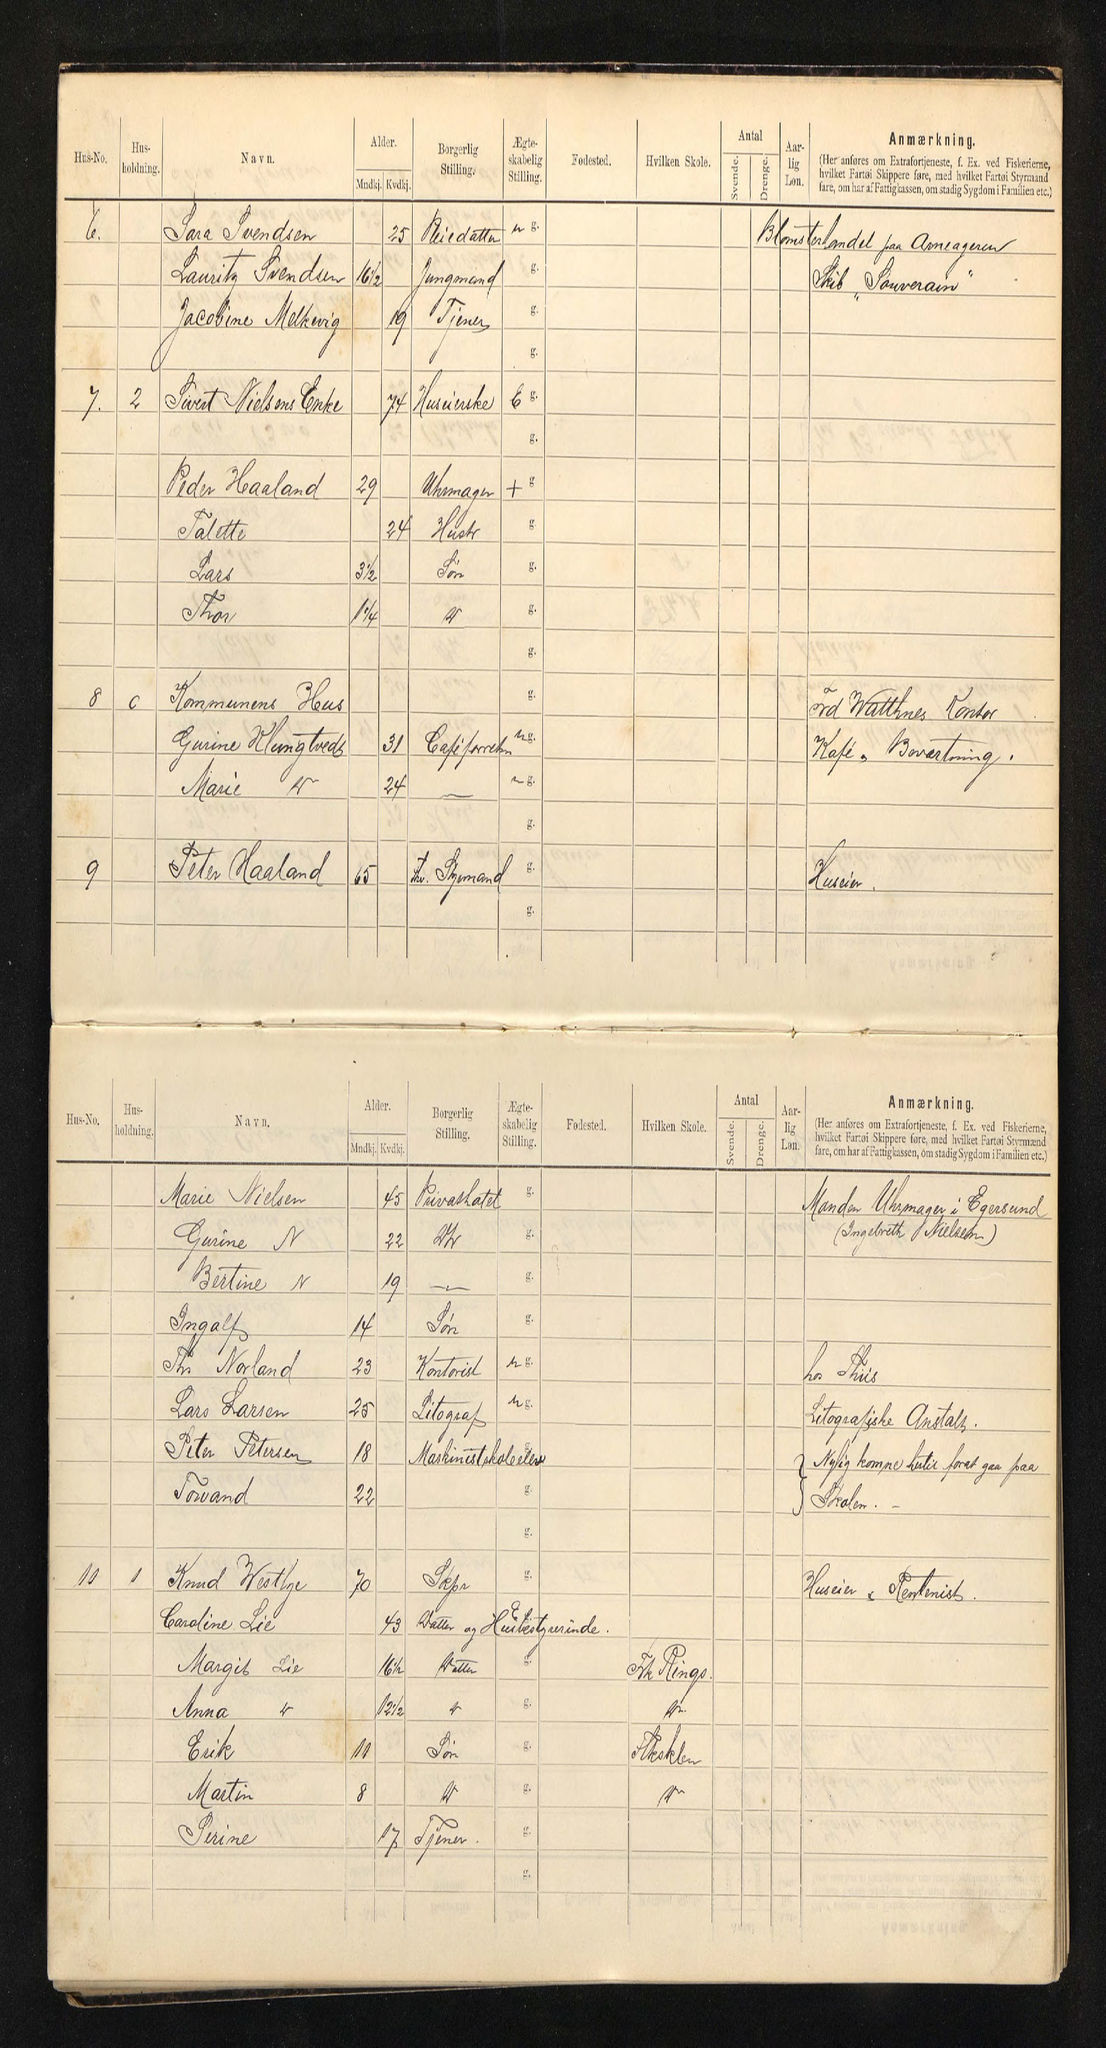 Hus-No. Hus-holdning. Navn. Alder. Mndkj. Kvdkj. Borgerlig Stilling. Ægte-skabelig Stilling. Fødested. Hvilken Skole. Antal Svende. Drenge. Aar-lig Løn. Anmærkning.
(Her anføres om Extrafortjeneste, f. Ex. ved Fiskerierne, hvilket Fartøi Skippere føre, med hvilket Fartøi Styrmænd fare, om har af Fattigkassen, om stadig Sygdom i Familien etc.)
6. Sara Svendsen 25 Pleiedatter g. Blomsterhandel paa
Lauritz Svendsen 16½ Jungmand g. Skib „Souverain"
Jacobine Melkevig 19 Tjener g.
g.
7. 2 Sivert Nielsens Enke 74 Huseierske E g.
g.
Peder Haaland 29 Uhrmager + g
Talette 24 Hustr g
Lars 3½ Søn g.
Thor 1¼ " g.
g.
8 0 Kommunens Hus g. Kontor
Gurine Klungtvedt 31 Caféforretn n g. Kafé & Beværtning.
Marie " 24 — n g.
g.
9 Peter Haaland 65 fhv. Styrmand g. Huseier.
g.
Hus-No. Hus-holdning. Navn. Alder. Mndkj. Kvdkj. Borgerlig Stilling. Ægte-skabelig Stilling. Fødested. Hvilken Skole. Antal Svende. Drenge. Aar-lig Løn. Anmærkning.
(Her anføres om Extrafortjeneste, f. Ex. ved Fiskerierne, hvilket Fartøi Skippere føre, med hvilket Fartøi Styrmænd fare, om har af Fattigkassen, om stadig Sygdom i Familien etc.)
Marie Nielsen 45 g. Manden Uhrmager i Egersund
Gurine N 22 Dtr g. (Ingebreth Nielsen)
Bertine N 19 — g.
Ingolf 14 Søn g.
Th. Norland 23 Kontorist n g. hos Thiis
Lars Larsen 25 Litograf n g. Litografiske Anstalt.
Peter Petersen 18 Maskinistskoleelev Nylig komne hertil forat gaa paa
22 g. Skolen. –
g.
10 1 Knud Westbye 70 Skpr g. Huseier & Rentenist.
Caroline Lie 43 Datter og E Husbestyrerinde.
Margit Lie 16½ Datter g. Frk Rings.
Anna " 12½ " g. "
Erik 10 Søn g.
Martin 8 " g. "
Serine 17 Tjener. g.
g.